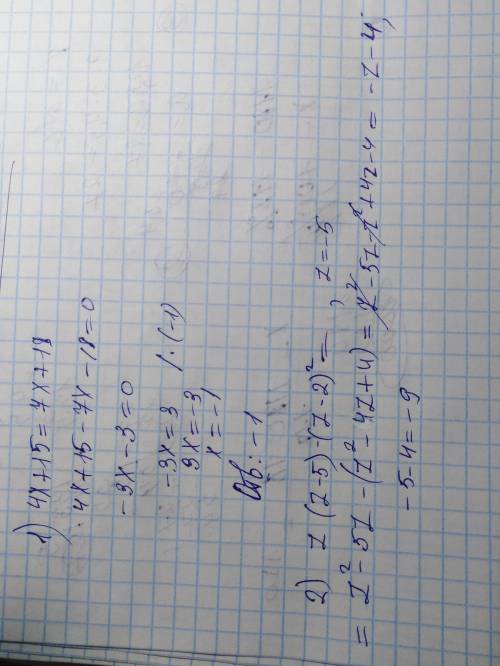 1) 4x+15=7x+18
4x+15-7x-18=0
-3x-3=0
-3x=3 /:(-1)
3x=-3
x=-1
Отв: -1
2) z(z-5)-(z-2)²= , z=-5
= z²-5z-(z²-4z+4)= z²-5z-z²+4z-4= -z-4;
-5-4=-9